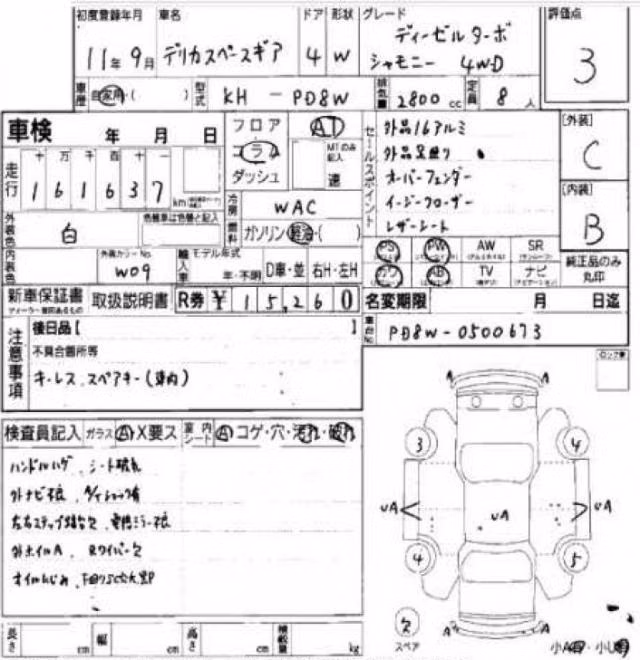 初度登録年月 車名 ドア 形状 グレード 評価点
11年9月 デリカスペースギア 4 W ディーゼルターボ
シャモニー 4WD 3
車歴 自家用・( ) 型式 KH － PD8W 排気量 2800 cc 定員 8 人
車検 年 月 日 フロア AT
コラム MTのみ記入
ダッシュ 速
走行 十 万 千 百 十 一
1 6 1 6 3 7 km
セールスポイント
外品16アルミ
外品足廻り
オーバーフェンダー
イージークローザー
レザーシート
[外装] C
[内装] B
純正品のみ丸印
冷房 WAC
外装色 白 色替車は色替と記入 燃料 ガソリン・軽油・( )
PS PW AW SR
カワ AB TV ナビ
内装色 外装カラーNo. W09 輸入車 モデル年式 年・不明 D車・並 右H・左H
新車保証書 取扱説明書 R券 ¥ 1 5,2 6 0
名変期限 月 日迄
車台No. PD8W-0500673
注意事項
後日品[ ]
不具合箇所等
キーレス、スペアキー(車内)
検査員記入 ガラス A X要ス 室内シート A コゲ・穴・汚れ・破れ
ハンドルハゲ、シート破れ
外ナビ不良
外ホイルA、Rワイパー欠
オイルにじみ
3 4
UA UA UA
4 5
A A
欠 スペア
長さ cm 幅 cm 高さ cm 積載量 kg